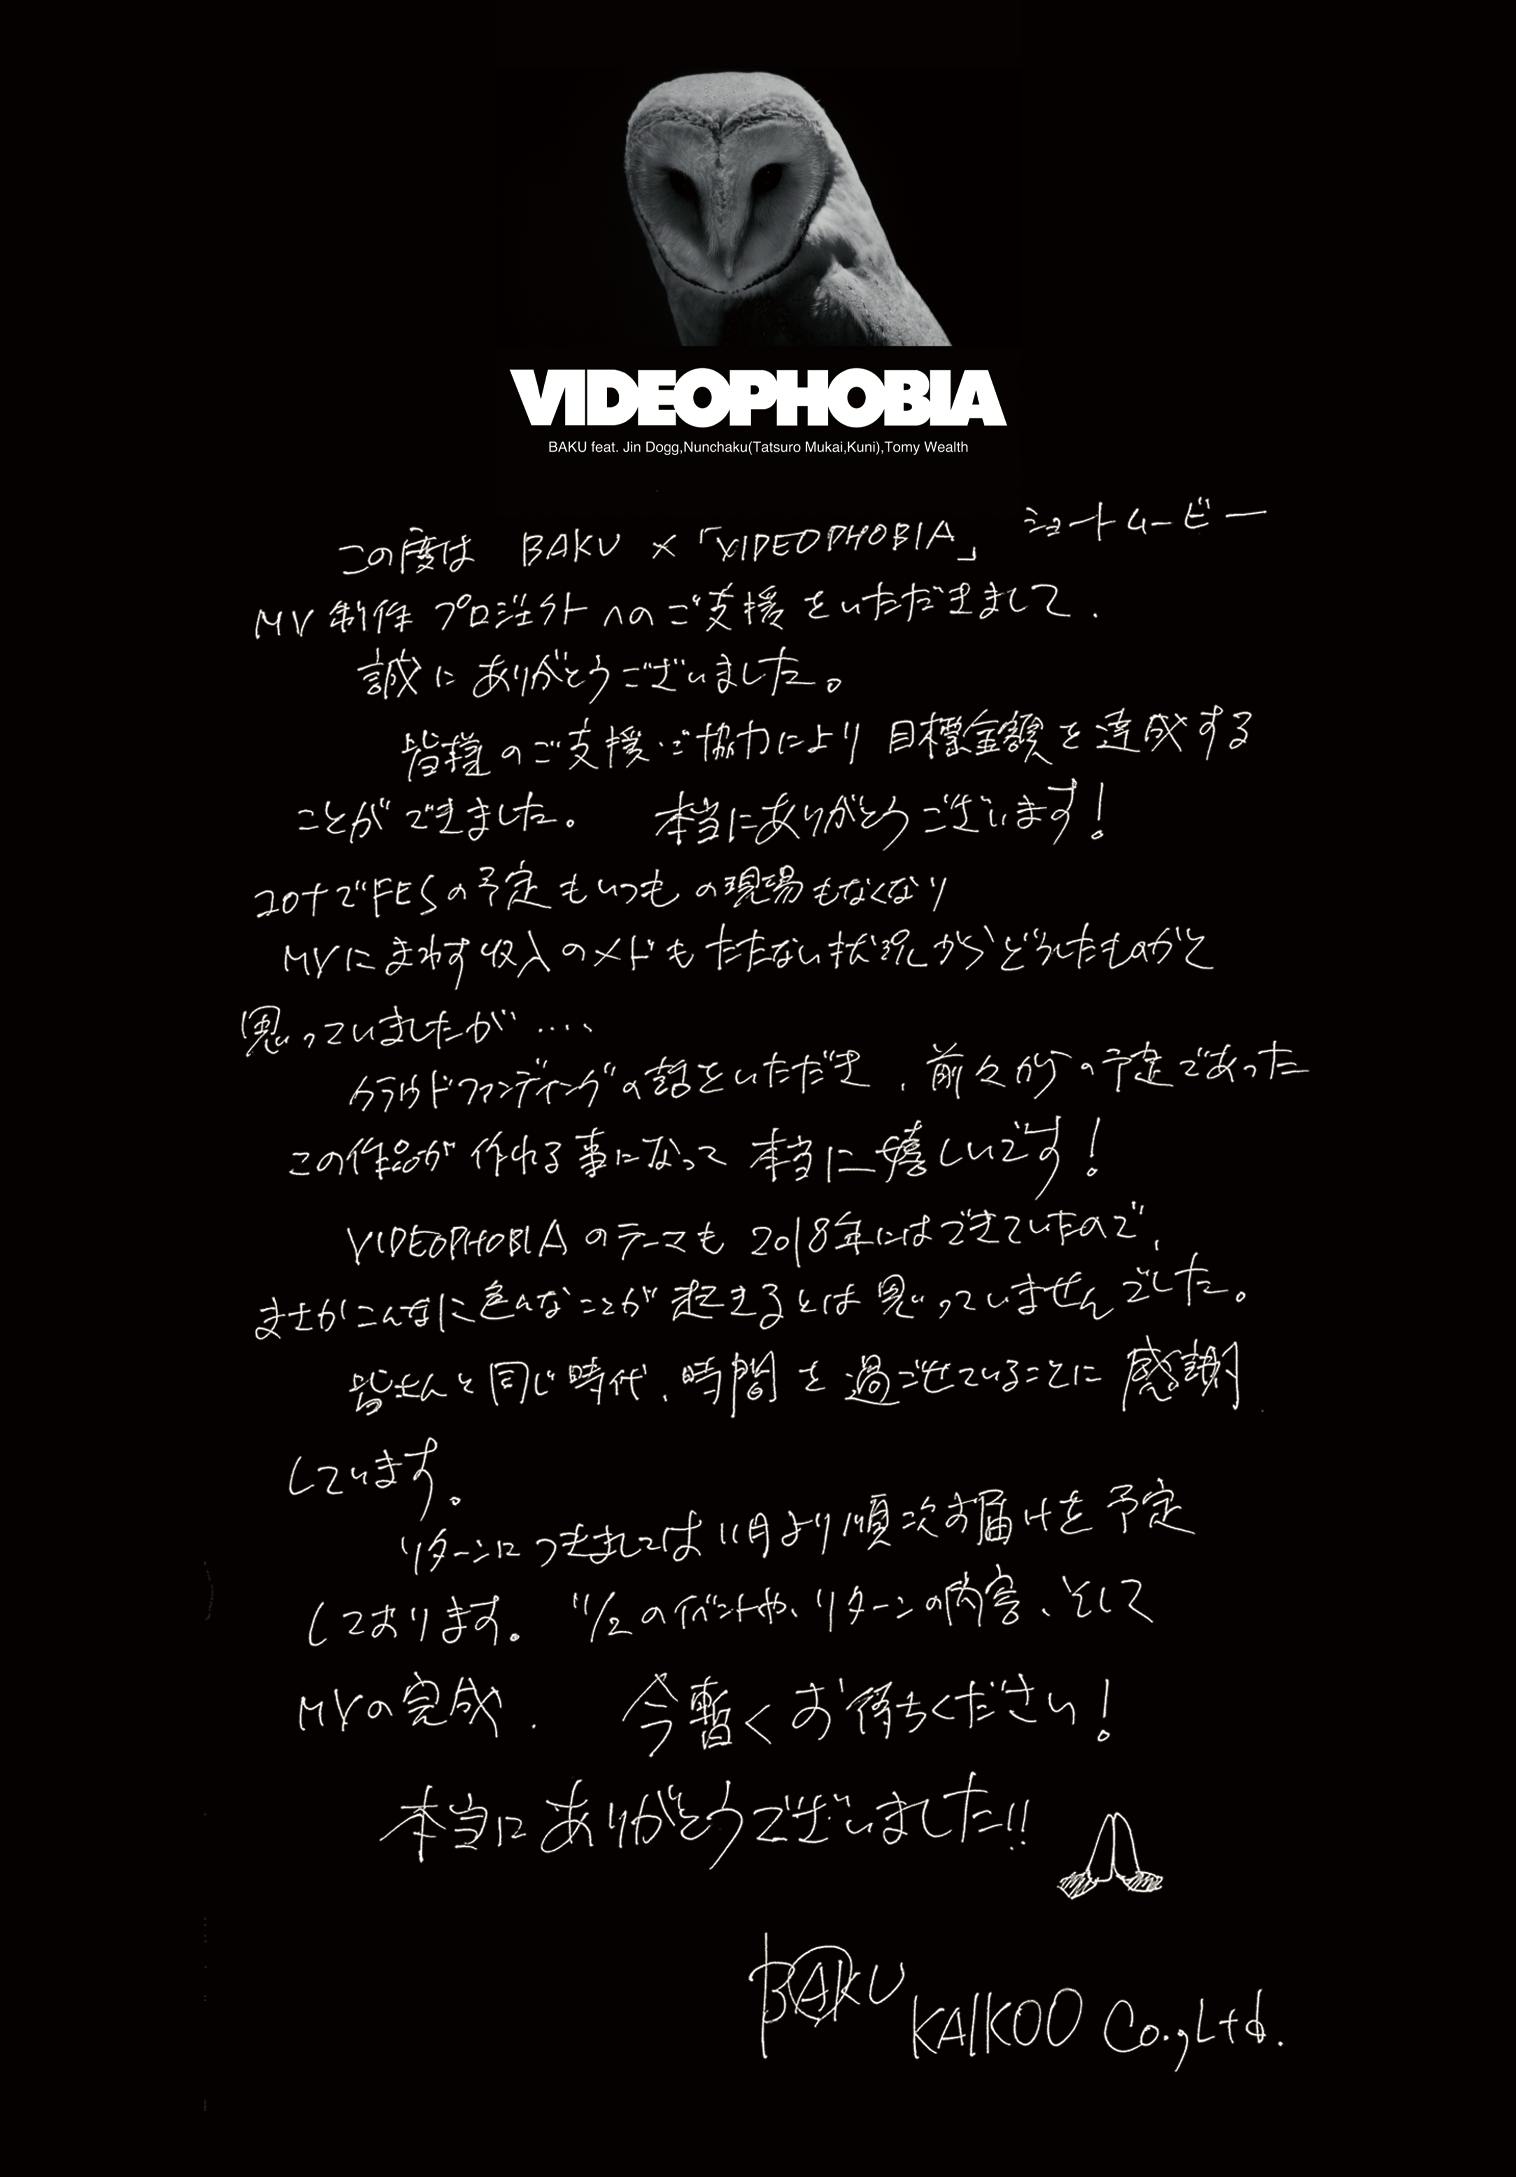 VIDEOPHOBIA
BAKU feat. Jin Dogg,Nunchaku(Tatsuro Mukai,Kuni),Tomy Wealth
この度は BAKU × 「VIDEOPHOBIA」 ショートムービー
MV 制作 プロジェクトへのご支援をいただきまして、
誠にありがとうございました。
皆様のご支援・ご協力により 目標金額を達成する
ことができました。 本当にありがとうございます!
コロナでFESの予定もいつもの現場もなくなり
MVにまわす収入のメドもたたない状況からどうしたものかと
思っていましたが‥‥
クラウドファンディングの話をいただき、前々からの予定であった
この作品が作れる事になって 本当に嬉しいです!
VIDEOPHOBIAのテーマも 2018年にはできていたので、
まさかこんなに色んなことが起きるとは思っていませんでした。
皆さんと同じ時代、時間を過ごせていることに感謝
しています。
リターンにつきましては11月より順次お届けを予定
しております。 11/2のイベントや、リターンの内容、そして
MVの完成、 今暫くお待ちください!
本当にありがとうございました!!
BAKU
KAIKOO Co.,Ltd.